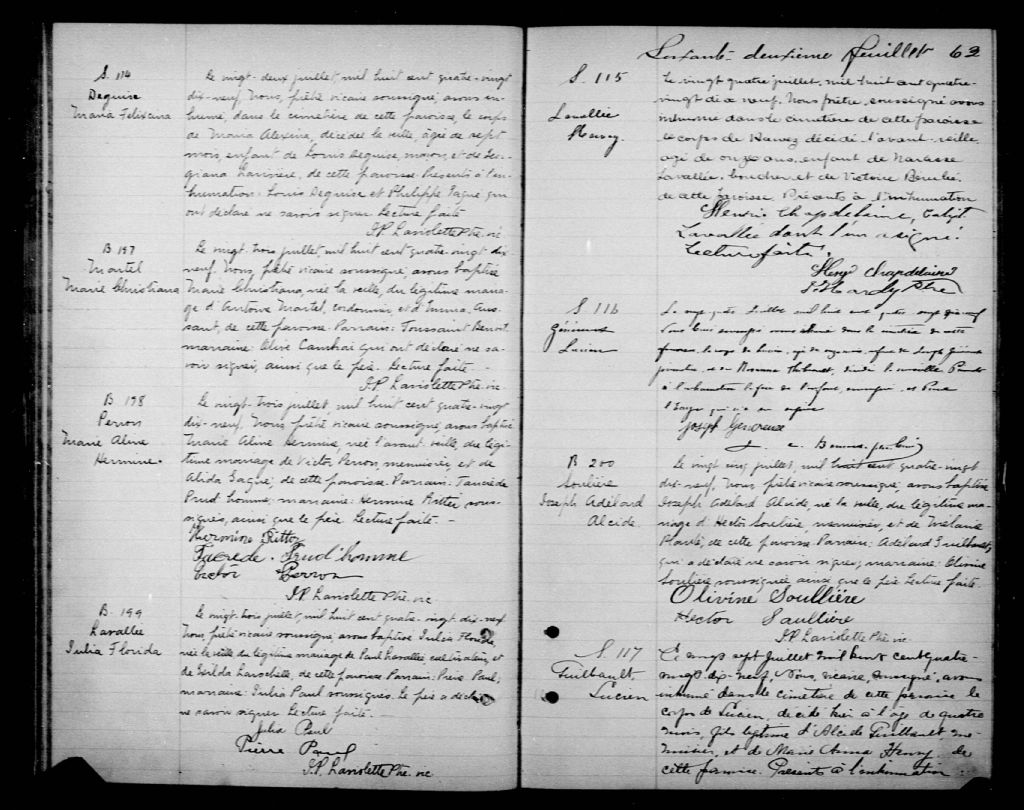 S. 114
Deguise
Maria Felixina
Le vingt-deux juillet, mil huit cent quatre-vingt
dix-neuf, Nous, prêtre vicaire soussigné, avons in-
humé, dans le cimetière de cette paroisse, le corps
de Maria Alexina, décédée la veille, âgée de sept
mois, enfant de Louis Deguise, maçon, et de Geor-
giana Larivière, de cette paroisse. Présents à l'in-
humation: Louis Deguise et Philippe Gagné qui
ont déclaré ne savoir signer. Lecture faite.
J.P. Laviolette Ptre. vic.
B 197
Martel
Marie Christiana
Le vingt-trois juillet, mil huit cent quatre-vingt dix-
neuf, Nous, prêtre vicaire soussigné, avons baptisé
Marie Christiana, née la veille, du légitime maria-
ge d'Antoine Martel, cordonnier, et d'Emma
de cette paroisse. Parrain: Toussaint Benoit,
marraine: qui ont déclaré ne sa-
voir signer, ainsi que le père. Lecture faite. -
J.P. Laviolette Ptre. vic.
B. 198
Perron
Marie Aline
Hermine.
Le vingt-trois juillet, mil huit cent quatre-vingt
dix-neuf, Nous, prêtre vicaire soussigné, avons baptisé
Marie Aline Hermine, née l'avant-veille, du légi-
time mariage de Victor Perron, menuisier, et de
Alida Gagné, de cette paroisse. Parrain: Tancrède
Prud'homme, marraine: Hermine Ritter, sous-
signés, ainsi que le père. Lecture faite. -
Hermine Ritter
Tacrede. Prud'homme
Victor Perron
J.P. Laviolette Ptre. vic
B. 199
Lavallée
Julia Florida
Le vingt-trois juillet, mil huit cent quatre-vingt-dix-neuf
Nous, prêtre vicaire soussigné, avons baptisé Julia Florida,
née la veille du légitime mariage de Paul Lavallée, cultivateur, et
de de cette paroisse. Parrain: Pierre Paul;
marraine: Julia Paul soussignés. Le père a déclaré
ne savoir signer. Lecture faite. -
Julia Paul
Pierre Paul
J.P. Laviolette Ptre. vic
Soixante-deuxième feuillet 62
S. 115
Lavallée
Harvey
Le vingt quatre juillet, mil huit cent quatre-
vingt dix neuf, Nous prêtre, soussigné avons
inhumé dans le cimetière de cette paroisse
le corps de décédé l'avant-veille
agé de onze ans, enfant de Narcisse
Lavallée, boucher et de Victoire
de cette paroisse. Présents à l'inhumation
Henri Chapdelaine,
Lavallée dont l'un a signé.
Lecture faite.
Chapdelaine
Ptre
S. 116
Généreux
Lucien
de cette
paroisse, le corps de Lucien, fils de Joseph Généreux
et de Thibault,
à l'inhumation le père de l'enfant, et
Joseph Genereux
B 200
Soulière
Joseph Adélard
Alcide
Le vingt cinq juillet, mil huit cent quatre-vingt
dix-neuf, Nous prêtre vicaire soussigné, avons baptisé
Joseph Adélard Alcide, né la veille, du légitime ma-
riage d'Hector Soulière menuisier, et de Mélanie
Plante, de cette paroisse. Parrain: Adélard Guilbault,
qui a déclaré ne savoir signer; marraine: Olivine
Soulière soussignée ainsi que le père. Lecture faite.
Olivine Soullière
Hector Saullière
J.P. Laviolette Ptre vic
S. 117
Guilbault
Lucien
Le vingt sept Juillet mil huit cent quatre-
vingt-dix-neuf, Nous, vicaire, soussigné, avons
inhumé dans le cimetière de cette paroisse le
corps de Lucien, décédé hier à l'âge de quatre
mois, fils légitime d'Alcide Guilbault me-
nuisier, et de Marie Anna Henry de
cette paroisse. Présents à l'inhumation: